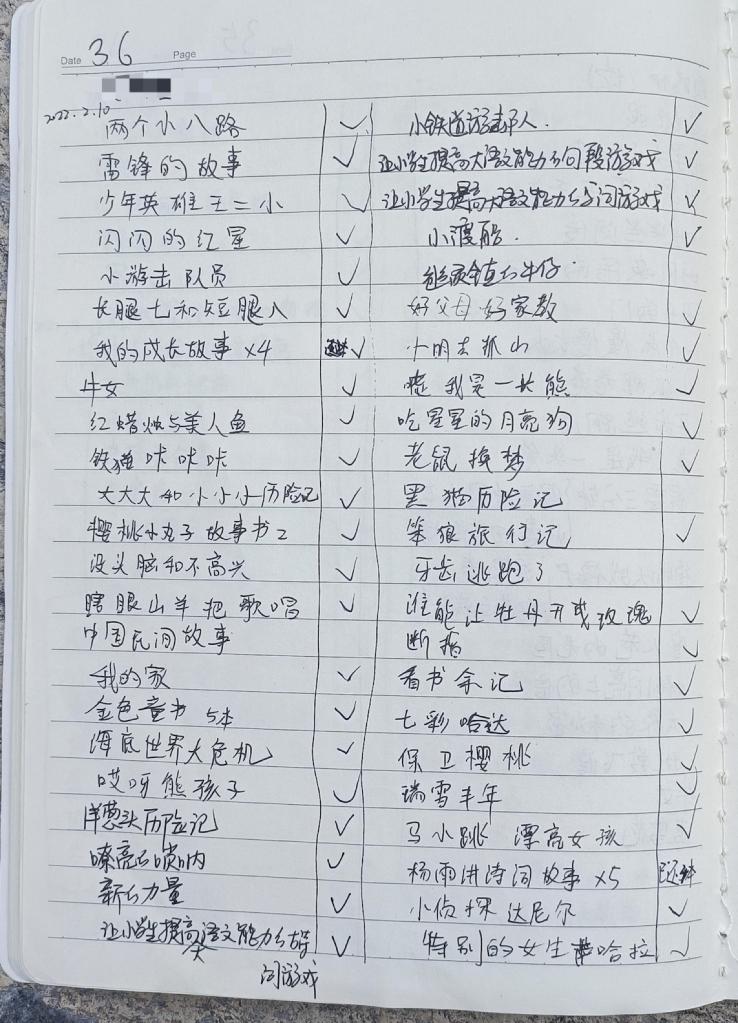 Date 36 Page
2022.2.10
两个小八路 ✓
雷锋的故事 ✓
少年英雄王二小 ✓
闪闪的红星 ✓
小游击队员 ✓
长腿七和短腿八 ✓
我的成长故事 ×4 ✓
牛女 ✓
红蜡烛与美人鱼 ✓
铁猫咔咔咔 ✓
大大大和小小小历险记 ✓
樱桃小丸子故事书2 ✓
没头脑和不高兴 ✓
瞎眼山羊把歌唱 ✓
中国民间故事
我的家 ✓
金色童书 5本 ✓
海底世界大危机 ✓
哎呀熊孩子 ✓
洋葱头历险记 ✓
嘹亮的唢呐 ✓
新的力量 ✓
让小学生提高大语文能力的
词游戏 ✓
小铁道游击队 ✓
让小学生提高大语文能力的句段游戏 ✓
让小学生提高大语文能力的字词游戏 ✓
小渡船 ✓
镇的牛仔
好父母好家教 ✓
小明去孤山 ✓
嘘 我是一头熊 ✓
吃星星的月亮狗 ✓
老鼠换梦 ✓
黑猫历险记
笨狼旅行记 ✓
牙齿逃跑了
谁能让牡丹开成玫瑰 ✓
断指 ✓
看书余记 ✓
七彩哈达 ✓
保卫樱桃 ✓
瑞雪丰年 ✓
马小跳 漂亮女孩 ✓
杨雨讲诗词故事 ×5
小侦探达尼尔 ✓
特别的女生哈拉 ✓